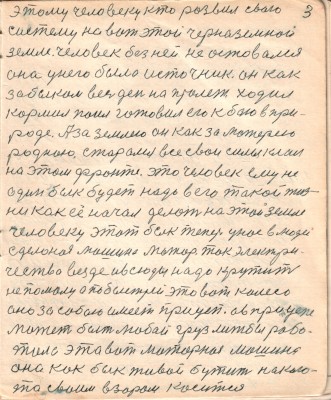 3
этому человеку кто розвил свою
систему на вот этой черназемной
земле. человек без ней не оставался
она у него была источник. он как
за быком весь ден на пролет ходил
кормил поил готовил его к баю в при-
роде. А за землею он как за матерею
родною, старался все свои силы клал
на этом фронте. это человек ему не
один бык будет надо в его такой жиз-
ни как её начал делат на этой земле
человеку этот бык тепер у нас в людей
сделоная машина мотор. так электри-
чество везде и всюду надо крутит
не по малу а по быстрый это вот колесо
оно за собою имеет прицеп. а в прицепе
может быт любой груз лиш бы рабо-
тала эта вот моторная машина
она как бык живой бутит на кого-
та своим взором косится